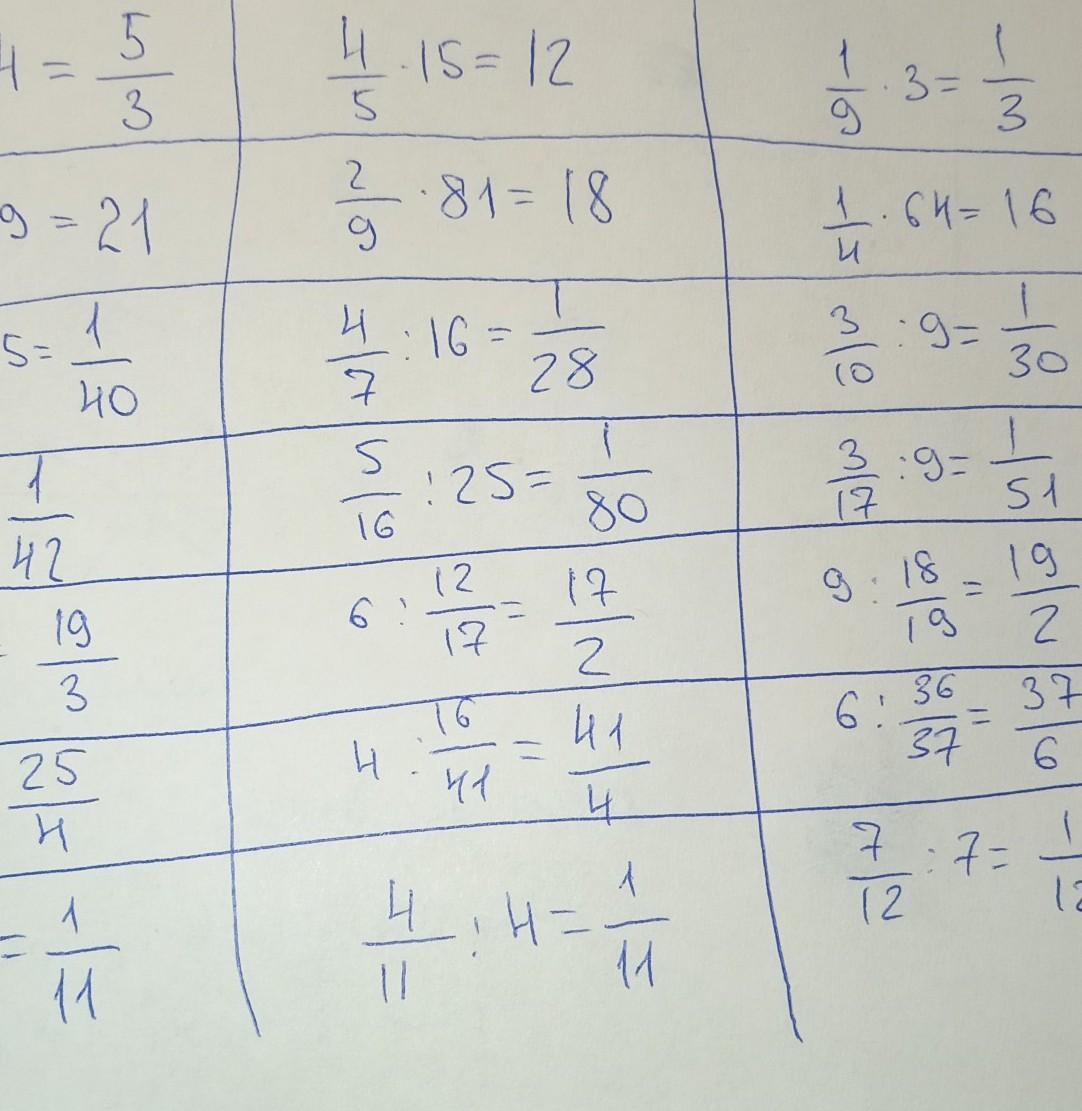 4 = 5/3 | 4/5 · 15 = 12 | 1/9 · 3 = 1/3
9 = 21 | 2/9 · 81 = 18 | 1/4 · 64 = 16
5 = 1/40 | 4/7 : 16 = 1/28 | 3/10 : 9 = 1/30
1/42 | 5/16 : 25 = 1/80 | 3/17 : 9 = 1/51
19/3 | 6 : 12/17 = 17/2 | 9 : 18/19 = 19/2
25/4 | 4 : 16/41 = 41/4 | 6 : 36/37 = 37/6
= 1/11 | 4/11 : 4 = 1/11 | 7/12 : 7 = 1/12